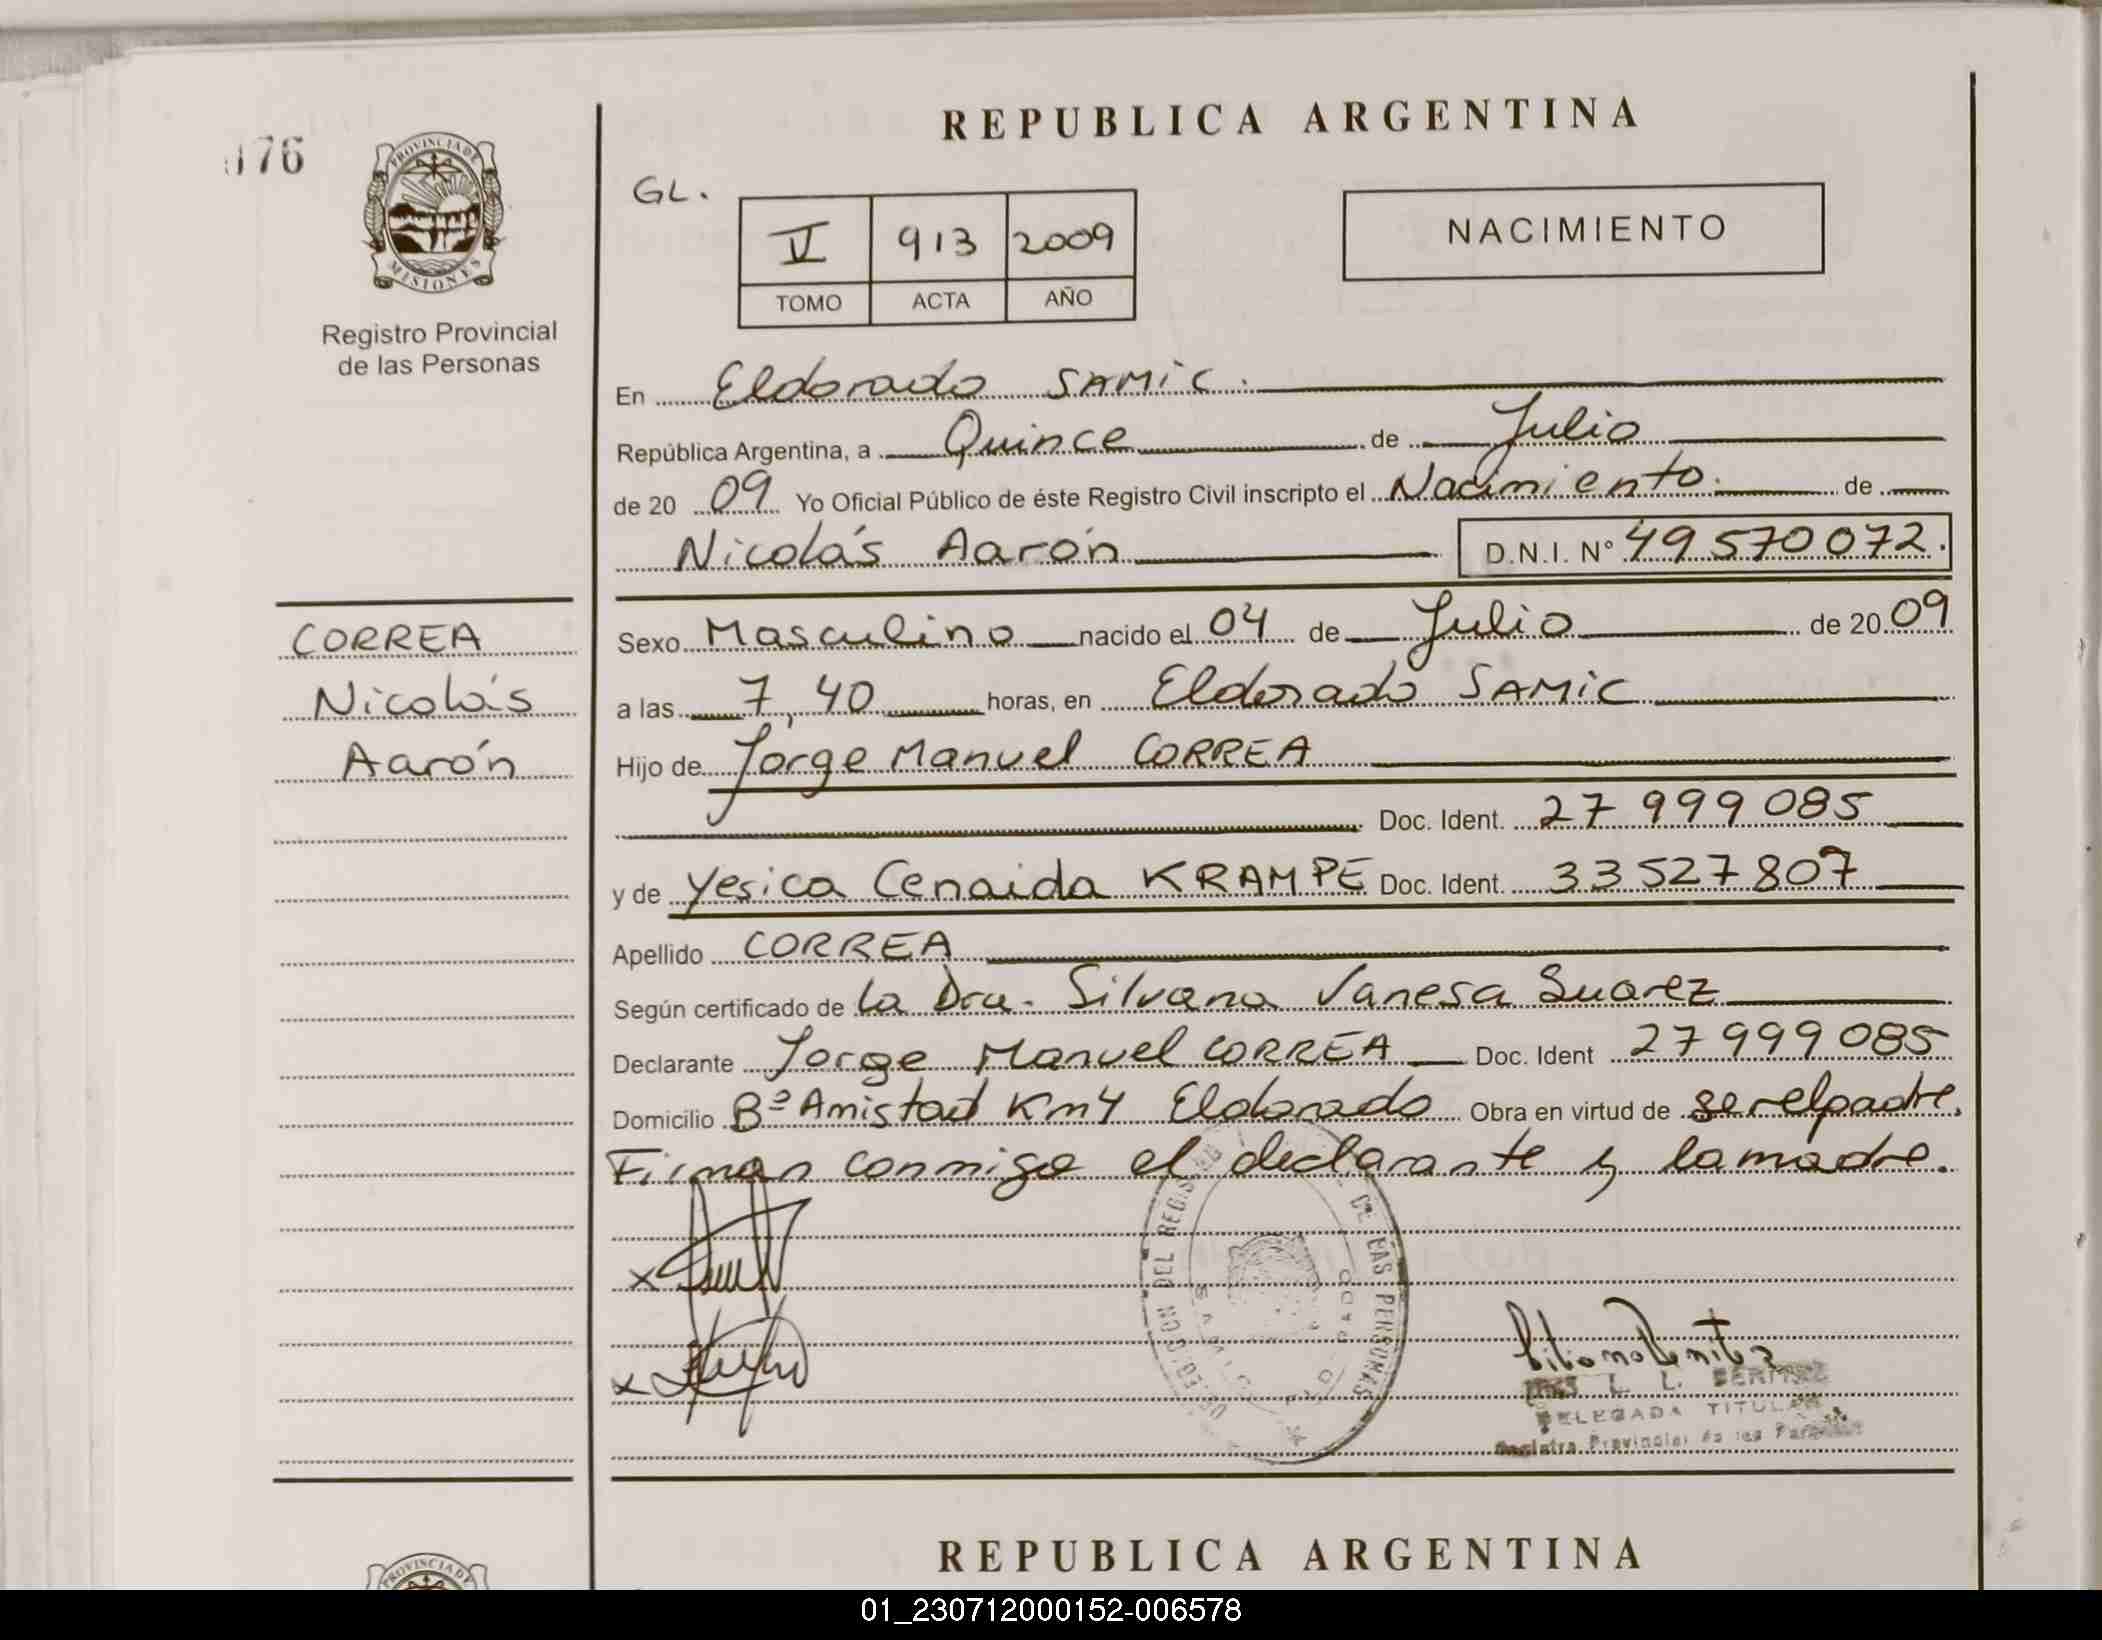 176
PROVINCIA DE
MISIONES
Registro Provincial
de las Personas
REPUBLICA ARGENTINA
GL.
V 913 2009
TOMO ACTA AÑO
NACIMIENTO
En Eldorado SAMIC.
República Argentina, a Quince de Julio
de 20 09 Yo Oficial Público de éste Registro Civil inscripto el Nacimiento. de
Nicolás Aarón D.N.I. N° 49 570 072.
CORREA
Nicolás
Aarón
Sexo Masculino nacido el 04 de Julio de 20 09
a las 7,40 horas, en Eldorado SAMIC
Hijo de Jorge Manuel CORREA
Doc. Ident. 27 999 085
y de Yesica Cenaida KRAMPE Doc. Ident. 33 527 807
Apellido CORREA
Según certificado de la Dra. Silvana Vanesa Suarez
Declarante Jorge Manuel CORREA Doc. Ident 27 999 085
Domicilio Bº Amistad Km 4 Eldorado Obra en virtud de ser el padre.
Firman conmigo el declarante y la madre.
x
x
DEL REGISTRO DE LAS PERSONAS
L. L. BENITEZ
DELEGADA TITULAR
Registro Provincial de las Personas
REPUBLICA ARGENTINA
PROVINCIA DE
01_230712000152-006578